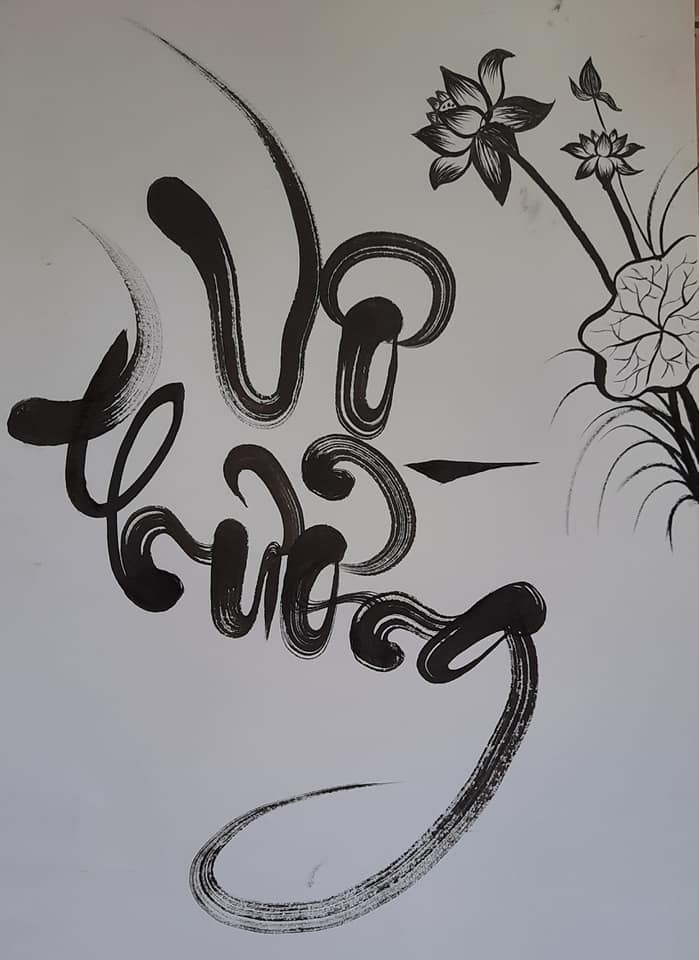 Vô
thường